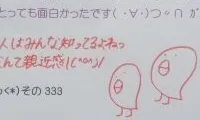 とっても面白かったです( ・∀・)つ
人はみんな知ってるよねっ
んて親近感!(^∩∩^)
っ<*)その 333